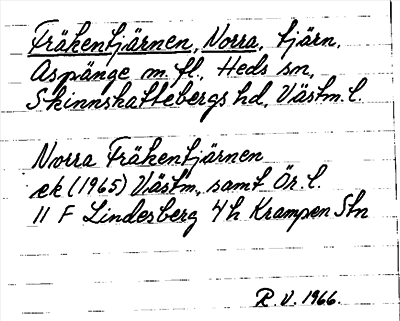 Fräkentjärnen, Norra, tjärn,
Aspänge m. fl., Heds sn,
Skinnskattebergs hd, Västm. l.
Norra Fräkentjärnen
ek (1965) Västm. samt Ör. l.
11 F Lindesberg 4 h Krampen Stn
R. V. 1966.